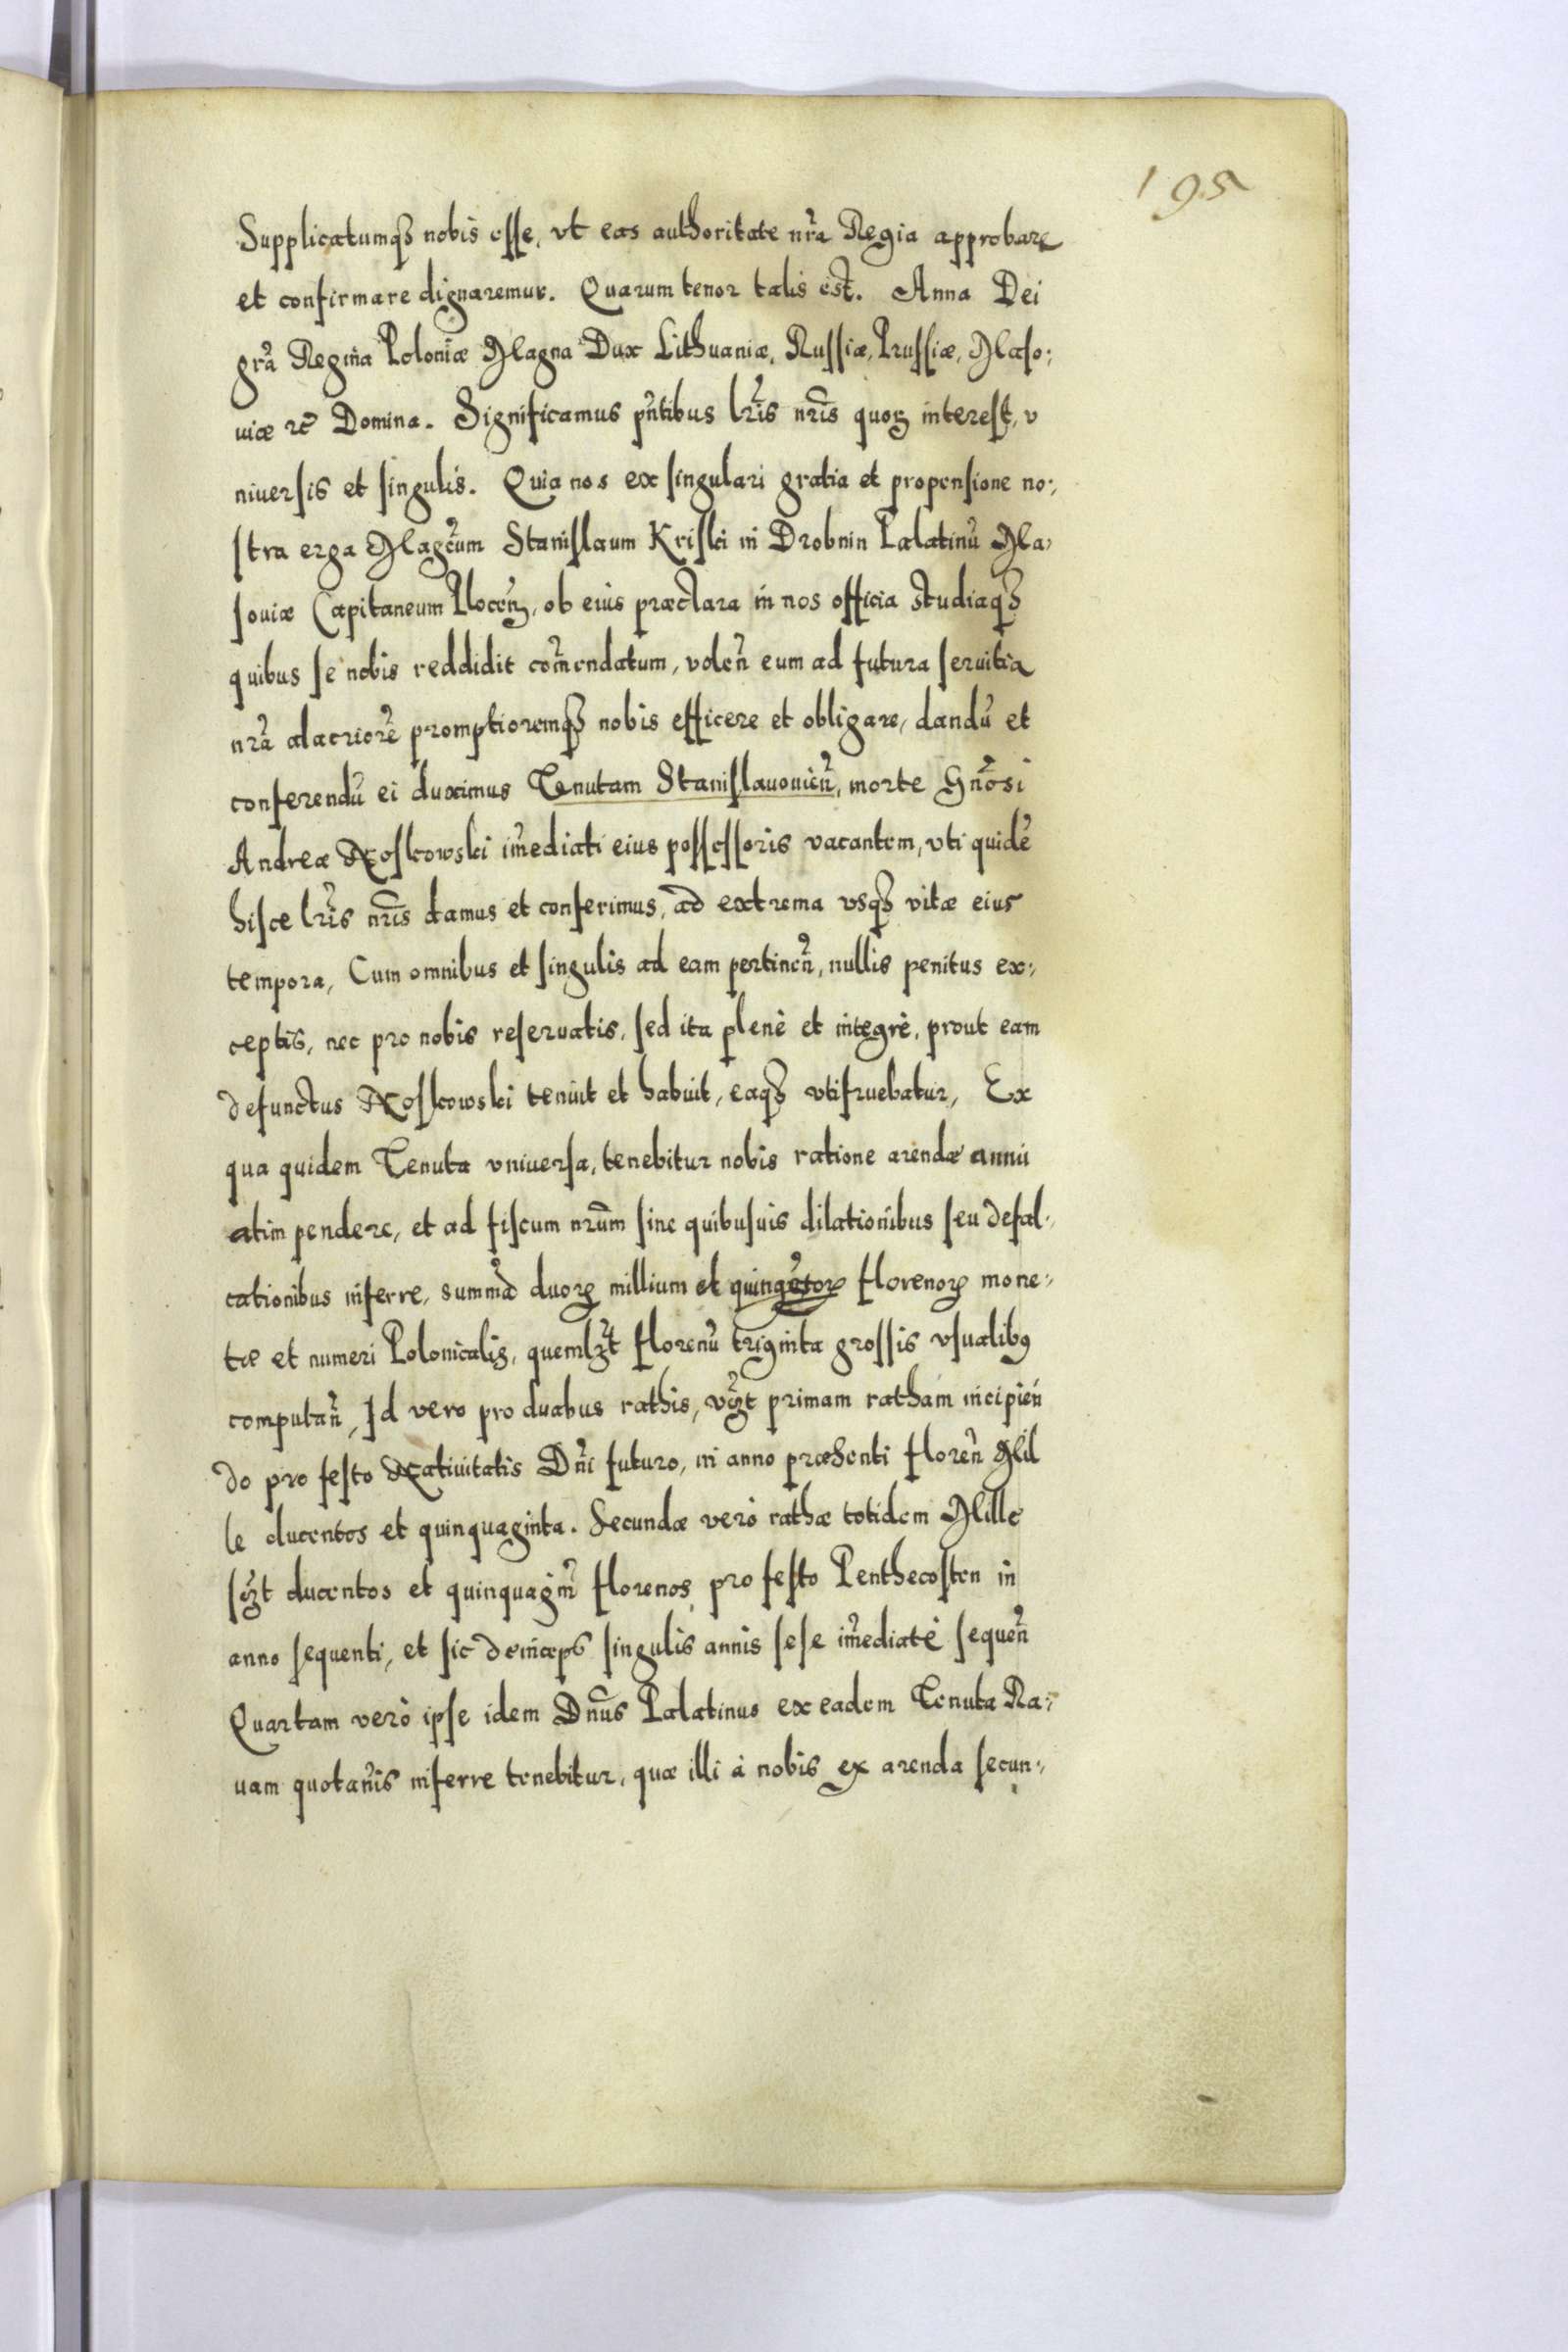 195
Supplicatumqȝ nobis esse, vt eas authoritate nr̃a Regia approbare
et confirmare dignaremur. Quarum tenor talis est. Anna Dei
gr̃a Regina Poloniæ Magna Dux Lithuaniæ, Russiæ, Prussiæ, Maso:
uiæ rc̃ Domina. Significamus pñtibus lr̃is nr̃is quoꝝ interest, v
niuersis et singulis. Quia nos ex singulari gratia et propensione no:
stra erga Magc̃um Stanislaum Kriski in Drobnin Palatinũ Ma:
souiæ Capitaneum Plocen̄, ob eius præclara in nos officia studiaqȝ
quibus se nobis reddidit com̃endatum, volen̄ eum ad futura seruitia
nr̃a alacriorẽ promptioremqȝ nobis efficere et obligare, dandũ et
conferendũ ei duximus Tenutam Stanislauouien̄, morte Gñosi
Andreæ Noskowski im̃ediati eius possessoris vacantem, vti quidẽ
hisce lr̃is nr̃is damus et conferimus, ad extrema vsqȝ vitæ eius
tempora, Cum omnibus et singulis ad eam pertinen̄, nullis penitus ex:
ceptis, nec pro nobis reseruatis, sed ita plenè et integrè, prout eam
defunctus Noskowski tenuit et habuit, eaqȝ vtifruebatur, Ex
qua quidem Tenuta vniuersa, tenebitur nobis ratione arendæ annu
atim pendere, et ad fiscum nr̃um sine quibusuis dilationibus seu defal:
cationibus inferre, summã duoꝝ millium et quingẽtoꝝ florenoꝝ mone:
tæ et numeri Polonicalis, quemlȝt florenũ triginta grossis vsualibꝰ
computan̄, Id vero pro duabus rathis, vȝt primam ratham incipien
do pro festo Natiuitatis Dñi futuro, in anno præsenti floren̄ Mil
le ducentos et quinquaginta. Secundæ verò rathæ totidem Mille
sȝt ducentos et quinquagin̄ florenos pro festo Penthecosten in
anno sequenti, et sic deinceps singulis annis sese im̃ediatè sequen̄
Quartam verò ipse idem Dñus Palatinus ex eadem Tenuta Ra:
uam quotañis inferre tenebitur, quæ illi à nobis ex arenda secun: